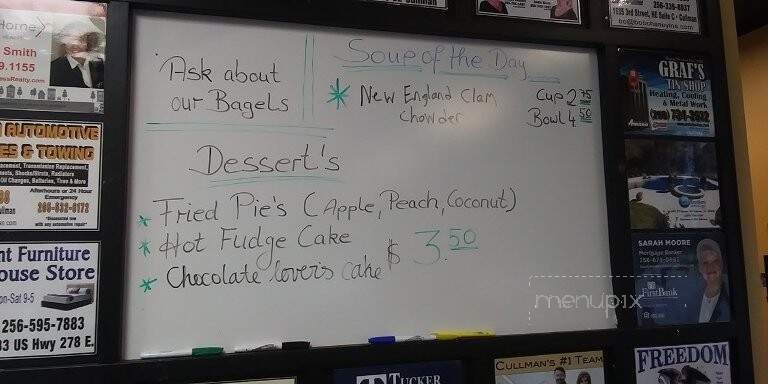 Ask about
our Bagels
Soup of the Day
* New England Clam
Chowder
Cup 2 75
Bowl 4 50
Dessert's
* Fried Pie's (Apple, Peach, Coconut)
* Hot Fudge Cake
* Chocolate lovers cake
$ 3.50
menupix
Home
Smith
9.1155
essRealty.com
AUTOMOTIVE
ES & TOWING
Afterhours or 24 Hour
Emergency
256-532-6173
nt Furniture
ouse Store
on-Sat 9-5
256-595-7883
33 US Hwy 278 E.
TUCKER
CULLMAN'S #1 TEAM
1835 3rd Street, NE Suite C • Cullman
GRAF'S
TIN SHOP
Heating, Cooling
& Metal Work
SARAH MOORE
Mortgage Banker
FirstBank
FREEDOM